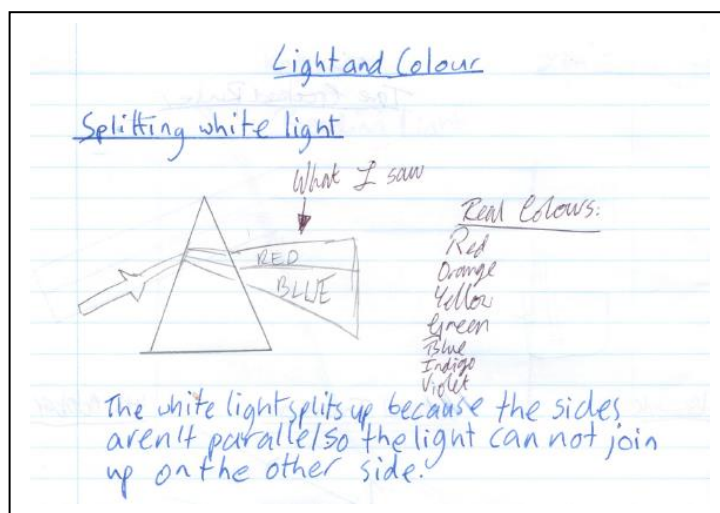 Light and Colour
Splitting white light
What I saw
RED
BLUE
Real Colours:
Red
Orange
Yellow
Green
Blue
Indigo
Violet
The white light splits up because the sides
aren't parallel so the light can not join
up on the other side.